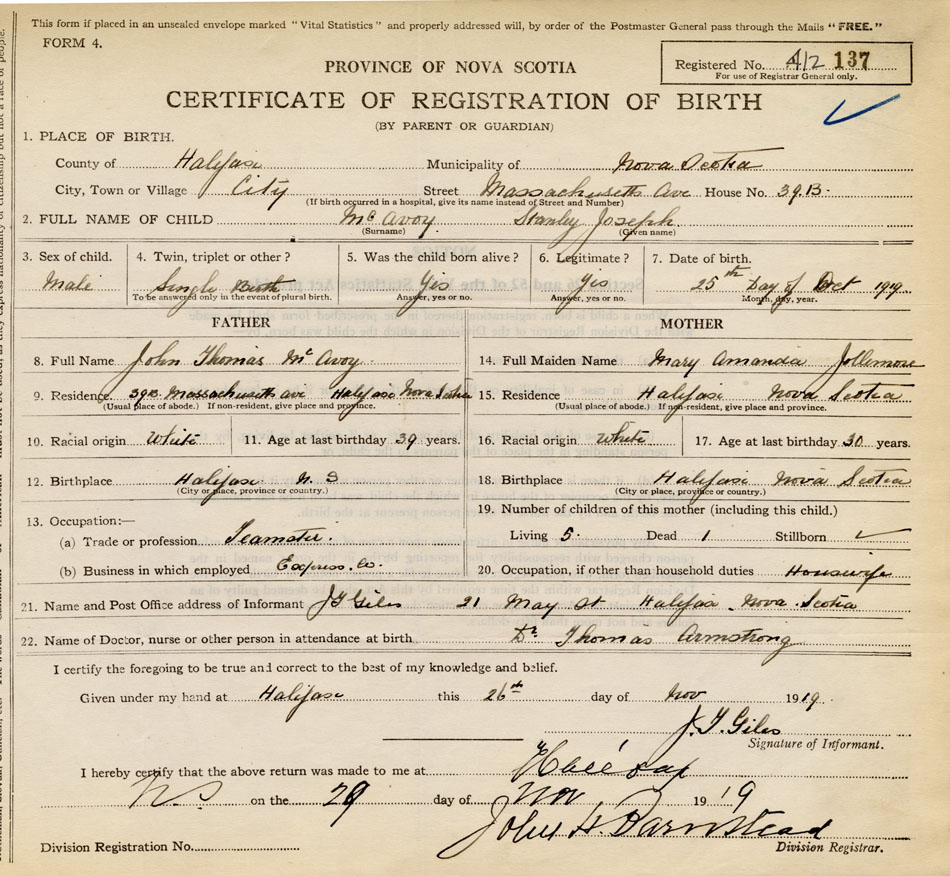 This form if placed in an unsealed envelope marked "Vital Statistics" and properly addressed will, by order of the Postmaster General pass through the Mails "FREE."
FORM 4.
Registered No. 412 137
For use of Registrar General only.
PROVINCE OF NOVA SCOTIA
CERTIFICATE OF REGISTRATION OF BIRTH
(BY PARENT OR GUARDIAN)
1. PLACE OF BIRTH.
County of Halifax Municipality of Nova Scotia
City, Town or Village City Street Massachusetts Ave House No. 39.B.
(If birth occurred in a hospital, give its name instead of Street and Number)
2. FULL NAME OF CHILD McAvoy Stanley Joseph
(Surname) (Given name)
3. Sex of child. 4. Twin, triplet or other? 5. Was the child born alive? 6. Legitimate? 7. Date of birth.
Male Single Birth Yis Yis 25th Day of Oct 1919
To be answered only in the event of plural birth. Answer, yes or no. Answer, yes or no. Month, day, year.
FATHER MOTHER
8. Full Name John Thomas McAvoy 14. Full Maiden Name Mary Amanda Jollemore
9. Residence 39B. Massachusetts ave Halifax Nova Scotia 15. Residence Halifax Nova Scotia
(Usual place of abode.) If non-resident, give place and province. (Usual place of abode.) If non-resident, give place and province.
10. Racial origin White 11. Age at last birthday 39 years. 16. Racial origin White 17. Age at last birthday 30 years.
12. Birthplace Halifax N. S 18. Birthplace Halifax Nova Scotia
(City or place, province or country.) (City or place, province or country.)
13. Occupation:— 19. Number of children of this mother (including this child.)
(a) Trade or profession Teamster. Living 5. Dead 1 Stillborn
(b) Business in which employed Express. Co. 20. Occupation, if other than household duties Housewife
21. Name and Post Office address of Informant J T Giles 21 May St Halifax Nova Scotia
22. Name of Doctor, nurse or other person in attendance at birth Dr Thomas Armstrong
I certify the foregoing to be true and correct to the best of my knowledge and belief.
Given under my hand at Halifax this 26th day of Nov 1919.
J. T. Giles
Signature of Informant.
I hereby certify that the above return was made to me at Halifax
N.S on the 29 day of Nov 1919
John H. Barnstead
Division Registrar.
Division Registration No.